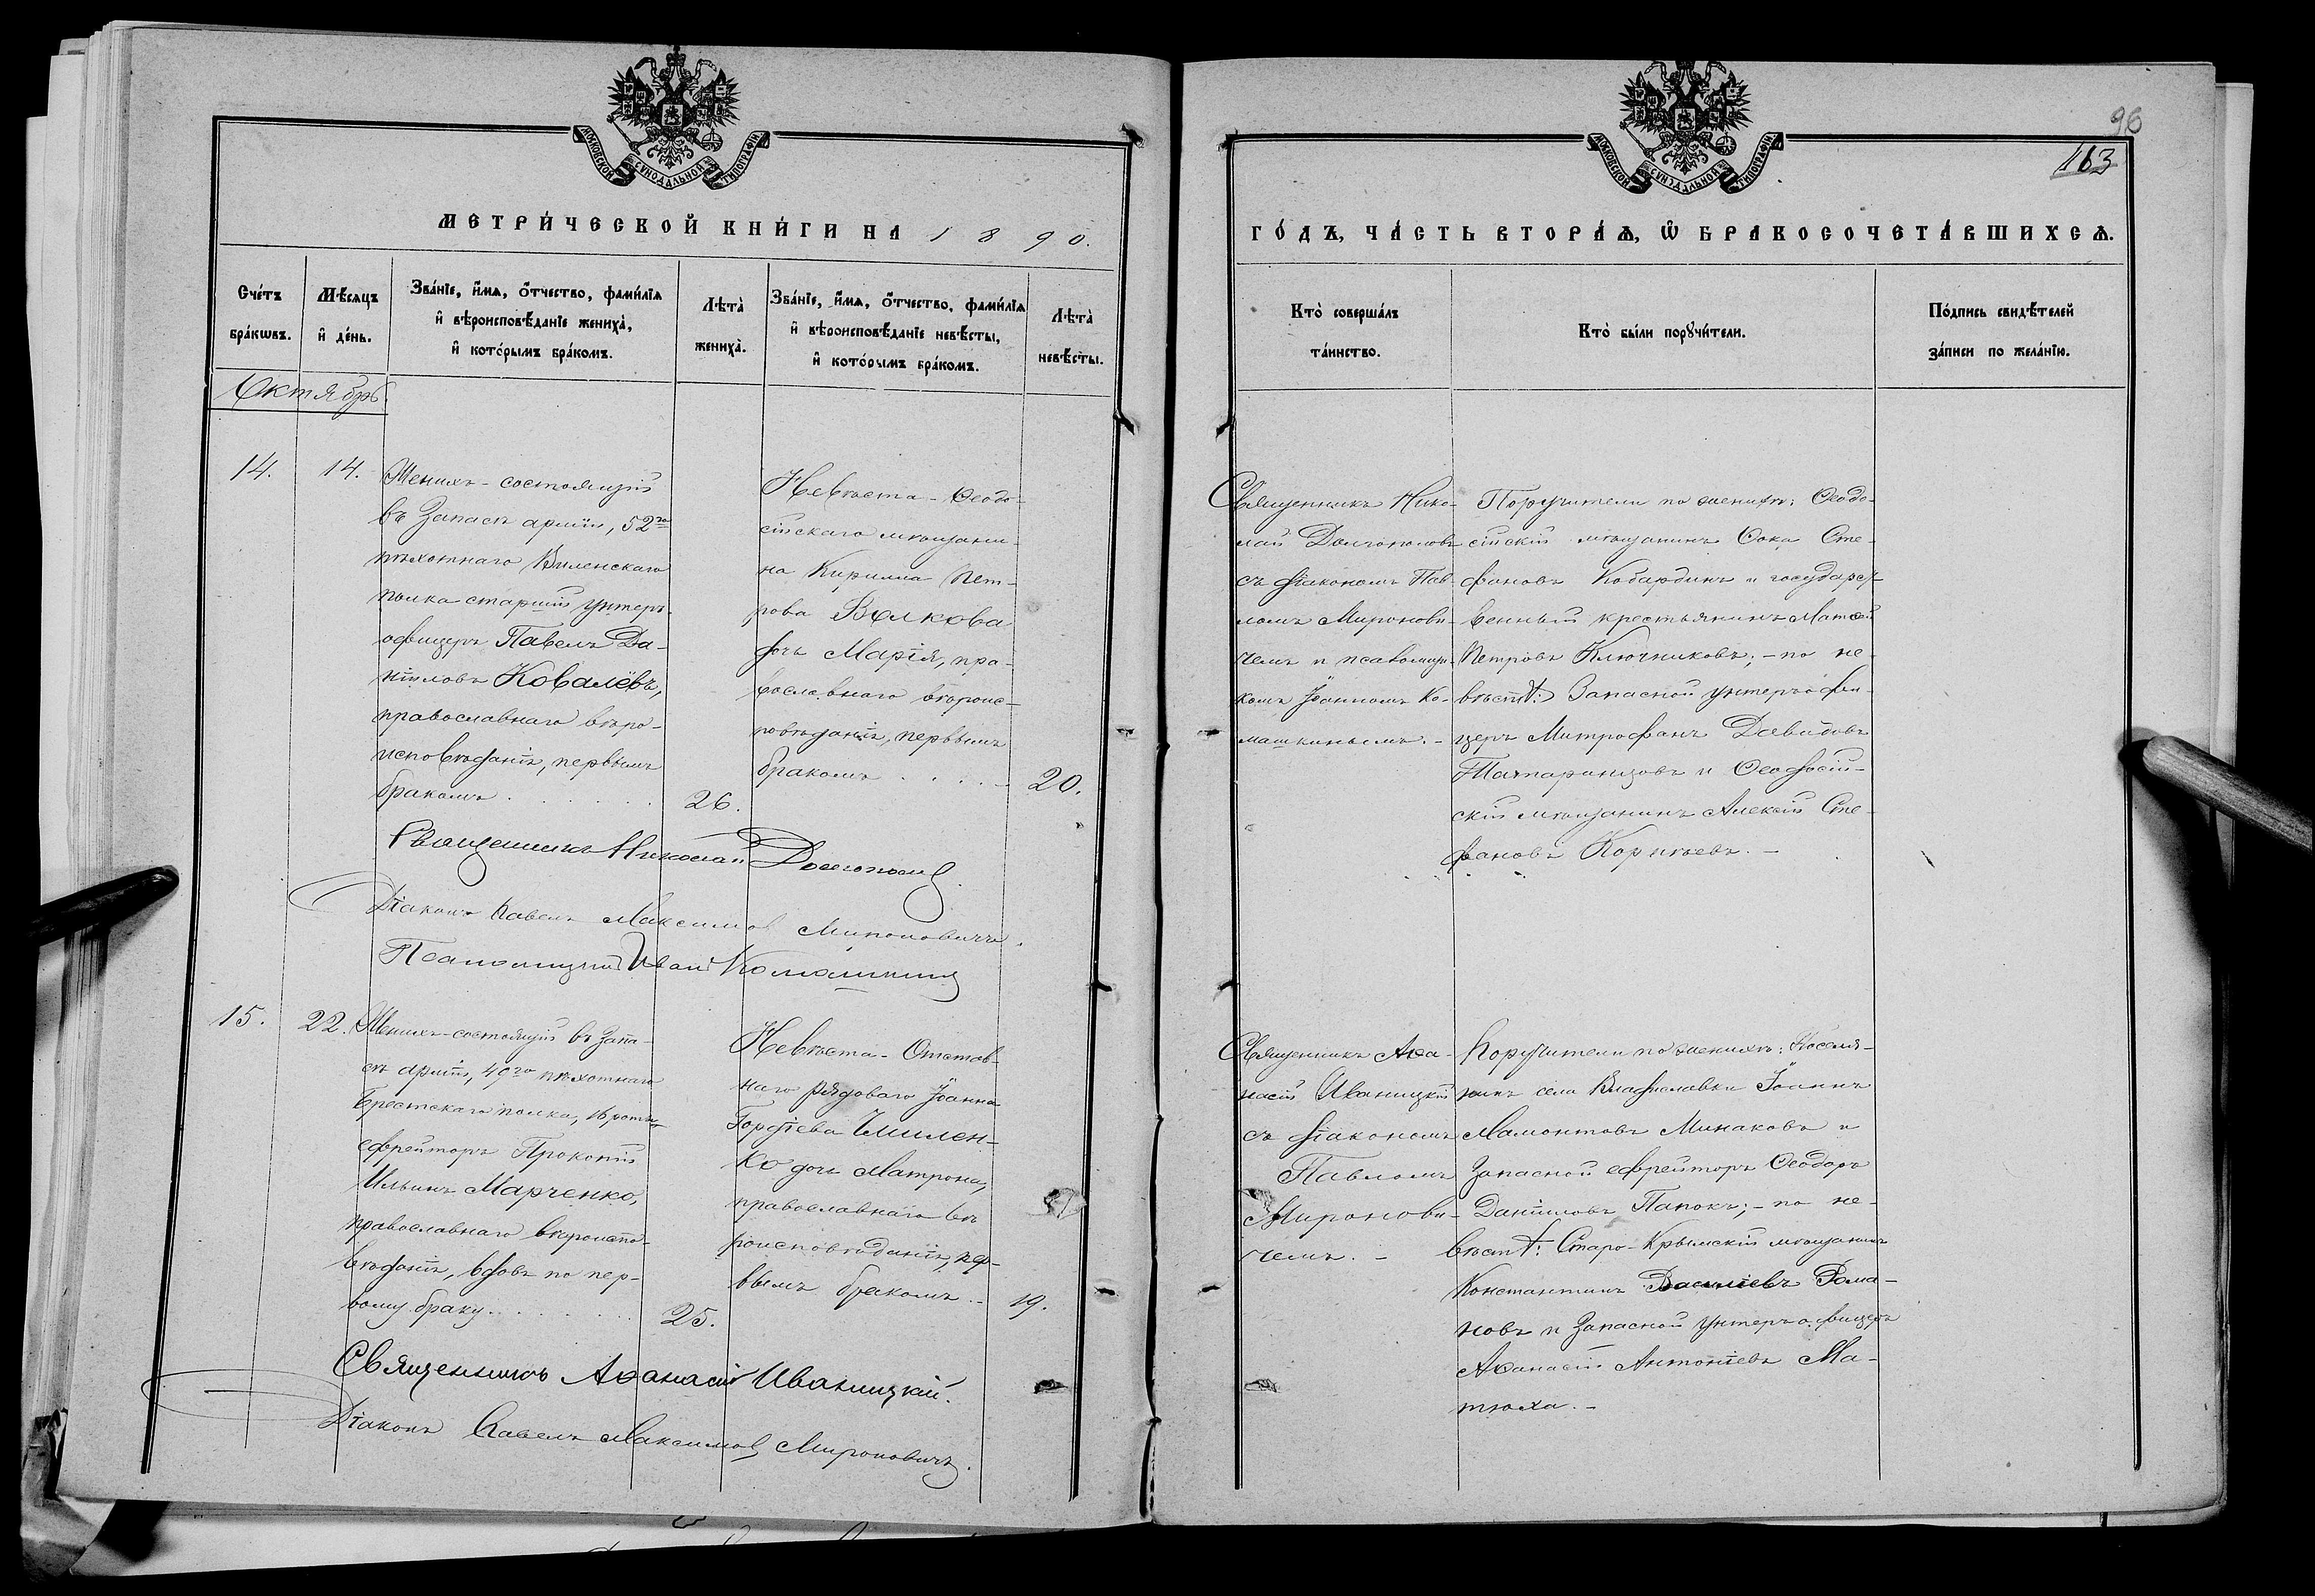 МОСКОВСКОЙ СѴНОДАЛЬНОЙ ТИПОГРАФІИ
МЕТРИ́ЧЕСКОЙ КНИ́ГИ НА 1890.
Счétъ бра́кѡвъ.
Мѣ́сяцъ и҆ де́нь.
Зва́нїе, и҆́мѧ, ѻ҆́тчество, фами́лїѧ
и҆ вѣроисповѣ́данїе жениха̀,
и҆ кото́рымъ бра́комъ.
Лѣта̀
жениха̀.
Зва́нїе, и҆́мѧ, ѻ҆́тчество, фами́лїѧ
и҆ вѣроисповѣ́данїе невѣ́сты,
и҆ кото́рымъ бра́комъ.
Лѣта̀
невѣ́сты.
Октябрь.
14.
14.
Женихъ - состоящій
въ Запасѣ арміи, 52го
пѣхотнаго Виленскаго
полка старшій унтеръ-
офицеръ Павелъ Да-
ніиловъ Ковалёвъ,
православнаго вѣро-
исповѣданія, первымъ
бракомъ
26.
Невѣста - Ѳеодо-
сійскаго мѣщани-
на Кирилла Пет-
рова Волкова
дочь Марія, пра-
вославнаго вѣроис-
повѣданія, первымъ
бракомъ
20.
Священникъ Николай Долгополовъ
Діаконъ Павелъ Максимовъ Мироновичъ.
Псаломщикъ Иванъ Комашкинъ
15.
22.
Женихъ - состоящій въ Запа-
сѣ арміи, 49го пѣхотнаго
Брестскаго полка, 16 роты
ефрейторъ Прокопій
Ильинъ Марченко,
православнаго вѣроиспо-
вѣданія, вдовъ по пер-
вому браку
25.
Невѣста - Отстав-
наго рядоваго Іоанна
Гордіева
ко дочь Матрона,
православнаго вѣ-
роисповѣданія, пер-
вымъ бракомъ. -
19.
Священникъ Аѳанасій Иваницкій.
Діаконъ Павелъ Максимовъ Мироновичъ.
96
163
МОСКОВСКОЙ СѴНОДАЛЬНОЙ ТИПОГРАФІИ
ГО́ДЪ, ЧА́СТЬ ВТОРА́Ѧ, Ѡ҆ БРАКОСОЧЕТА́ВШИХСѦ.
Кто̀ соверша́лъ
та́инство.
Кто̀ бы́ли порꙋчи́тели.
По́дпись свидѣ́телей
за́писи по жела́нїю.
Священникъ Нико-
лай Долгополовъ
съ діакономъ Пав-
ломъ Миронови-
чемъ и псаломщи-
комъ Іоанномъ Ко-
машкинымъ. -
Поручители по женихѣ: Ѳеодо-
сійскій мѣщанинъ Ѳока Сте-
фановъ Кобардинъ и государст-
венный крестьянинъ Матѳей
Петровъ Ключниковъ; - по не-
вѣстѣ: Запасной унтеръ офи-
церъ Митрофанъ Давидовъ
Татаринцовъ и Ѳеодосій-
скій мѣщанинъ Алексій Сте-
фановъ Корнѣевъ. -
Священникъ Аѳа-
насій Иваницкій
съ діакономъ
Павломъ
Миронови-
чемъ. -
Поручители по женихѣ: Поселя-
нинъ села Владиславки Іоаннъ
Мамонтовъ Минаковъ и
Запасной ефрейторъ Ѳеодоръ
Даніиловъ Папокъ; - по не-
вѣстѣ: Старо-Крымскій мѣщанинъ
Константинъ Василіевъ Рома-
новъ и Запасной унтеръ офицеръ
Аѳанасій Антоніевъ Ма-
тюха. -